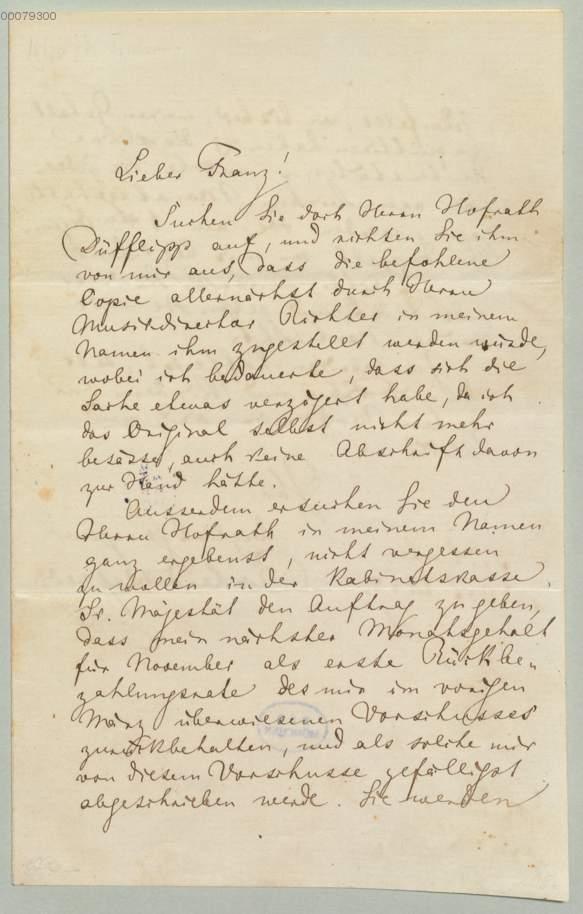 00079300
Lieber Franz!
Suchen Sie doch Herrn Hofrath
Düfflipp auf, und richten Sie ihm
von mir aus, dass die befohlene
Copie allernächst durch Herrn
Musikdirector Richter in meinem
Namen ihm zugestellt werden würde,
wobei ich bedauerte, dass sich die
Sache etwas verzögert habe, da ich
das Original selbst nicht mehr
besässe, auch keine Abschrift davon
zur Hand hätte.
Ausserdem ersuchen Sie den
Herrn Hofrath in meinem Namen
ganz ergebenst, nicht vergessen
zu wollen in der Kabinetskasse
Sr. Majestät den Auftrag zu geben,
dass mein nächster Monatsgehalt
für November als erste Rückbe-
zahlungsrate des mir im vorigen
März überwiesenen Vorschusses
zurückbehalten, und als solche mir
von diesem Vorschusse gefälligst
abgeschrieben werde. Sie werden